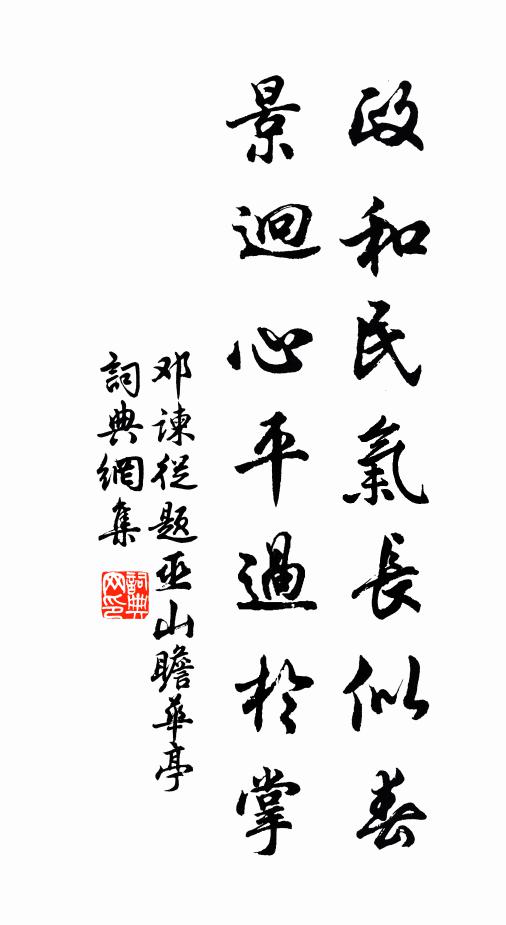 政和民氣長似春
景迥心平過於掌
邓諫從题巫山瞻華亭
詞典網集
詞典
网印